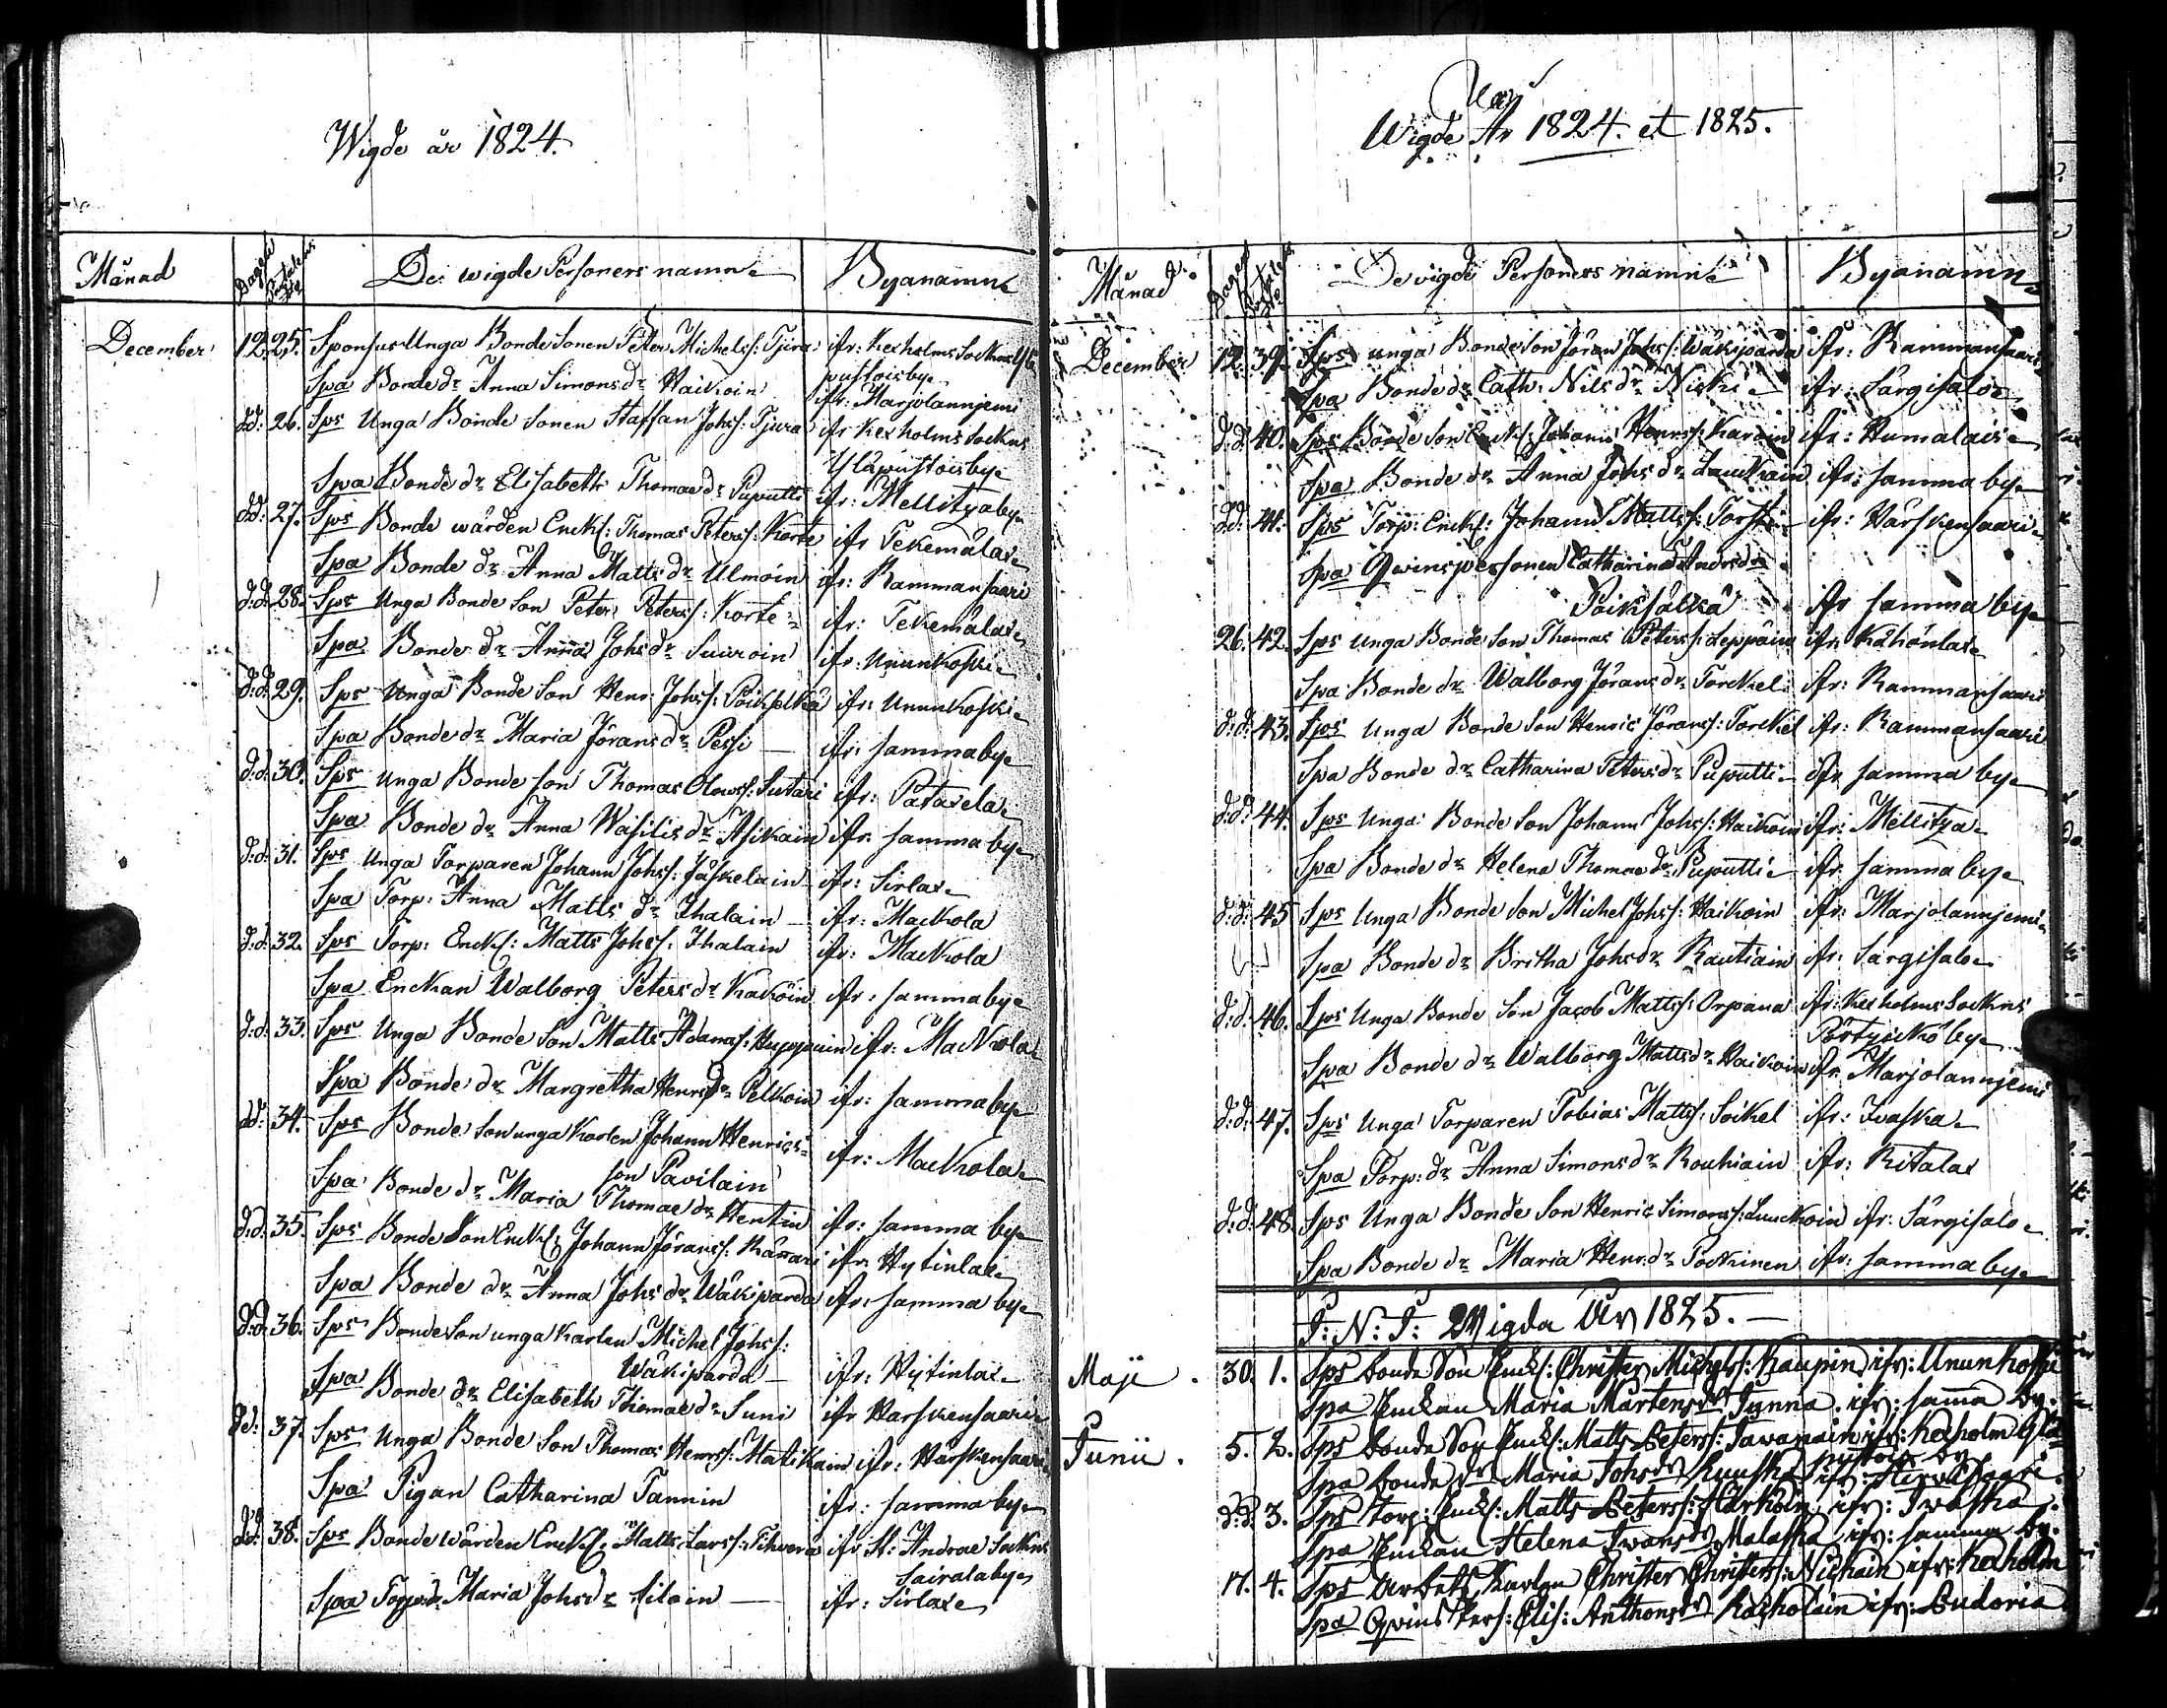 Wigde år 1824.
Månad
Dagen
De wigde Personers namn
Byanamn
December 12. 25. Sponsus Unga Bonde Sonen Peter Michelss: Tjira ifr: Kexholms Sockns Ylä
pustois by
Spa Bonde dr Anna Simons dr Haikoin ifr: Marjolannjemi
d.d: 26. Sps Unga Bonde Sonen Staffan Johss: Tjura ifr Kexholms Sockns
Yläpustois by
Spa Bonde dr Elisabeth Thomae dr Puputti ifr: Mellitza by
d.d: 27. Sps Bonde wärden Enckl: Thomas Peterss: Korte ifr Tekemälae
Spa Bonde dr Anna Matts dr Ulmoin ifr: Rammansaari
d:d: 28. Sps Unga Bonde Son Peter Peterss: Korte ifr: Tekemälae
Spa Bonde dr Anna Johs dr Suuroin ifr: Ununkoski
d:d: 29. Sps Unga Bonde Son Henr: Johss: Poikselkä ifr: Ununkoski
Spa Bonde dr Maria Jörans dr Pessi ifr: samma by
d:d: 30. Sps Unga Bonde Son Thomas Olowss: Sutari ifr: Patarela
Spa Bonde dr Anna Wasilis dr Asikain ifr: samma by
d:d: 31. Sps Unga Torparen Johann Johss: Jäskelain ifr: Sirlax
Spa Torp: Anna Matts dr Ihalain ifr: Mackola
d:d: 32. Sps Torp: Enckl: Matts Johss: Ihalain ifr: Mackola
Spa Enckan Walborg Peters dr Kakoin ifr: samma by
d:d: 33. Sps Unga Bonde Son Matts Adamss: Huppuin ifr: Mackola
Spa Bonde dr Margretha Henrs dr Pelkoin ifr: samma by
d:d: 34. Sps Bonde Son unga Karlen Johann Henrics
son Pavilain ifr: Mackola
Spa Bonde dr Maria Thomae dr Hentin ifr: samma by
d:d: 35. Sps Bonde Son Enckl: Johann Jöranss: Kärrari ifr: Hytinlax
Spa Bonde dr Anna Johs dr Wäkiparda ifr: samma by
d:d: 36. Sps Bonde Son unga Karlen Michel Johss:
Wäkiparda ifr: Hytinlax
Spa Bonde dr Elisabeth Thomae dr Suni ifr Härskensaari
d:d: 37. Sps Unga Bonde Son Thomas Henrss: Matikain ifr: Härskensaari
Spa Pigan Catharina Tannin ifr: samma by
d:d: 38. Sps Bonde wärden Enckl: Matts Larss: Tihvera ifr St: Andrae Sockns
Sairala by
Spa Torp: dr Maria Johs dr Ailoin ifr: Sirlax
Wigde År 1824. et 1825.
Månad
Dagen
De vigde Personers namn
Byanamn
December 12. 39. Sps unga Bonde Son Jöran Johss: Wäkiparda ifr: Rammansaari
Spa Bonde dr Cath: Nils dr Niski ifr: Särgisalo
d:d: 40. Sps Bonde Son Enckl: Johann Henrss: Karoin ifr: Humalais
Spa Bonde dr Anna Johs dr Lauckain ifr: samma by
d:d: 41. Sps Torp: Enckl: Johann Mattss: Torsti ifr: Härskensaari
Spa Qwinspersonen Catharina Anders dr
Poikselkä ifr samma by
26. 42. Sps Unga Bonde Son Thomas Peterss: Leppäin ifr: Kähönlax
Spa Bonde dr Walborg Jörans dr Torckel ifr: Rammansaari
d:d: 43. Sps Unga Bonde Son Henric Jöranss: Torckel ifr: Rammansaari
Spa Bonde dr Catharina Peters dr Puputti ifr samma by
d:d: 44. Sps Unga Bonde Son Johann Johss: Haikoin ifr: Mellitza
Spa Bonde dr Helena Thomae dr Puputti ifr: samma by
d:d: 45 Sps Unga Bonde Son Michel Johss: Haikoin ifr: Marjolannjemi
Spa Bonde dr Britha Johs dr Rautiain ifr: Särgisalo
d:d: 46. Sps Unga Bonde Son Jacob Mattss: Orpana ifr: Kexholms Sockns
Pörtyickö by
Spa Bonde dr Walborg Matts dr Haikoin ifr Marjolannjemi
d:d: 47. Sps Unga Torparen Tobias Mattss: Soikel ifr: Iwaska
Spa Torp: dr Anna Simons dr Rouhiain ifr: Ritalax
d:d: 48. Sps Unga Bonde Son Henric Simonss: Luuckoin ifr: Särgisalo
Spa Bonde dr Maria Henr: dr Pockinen ifr: samma by
I: N: I: Wigda År 1825.
Maji. 30. 1. Sps Bonde Son Enckl: Christer Michelss: Kaupin ifr: Ununkoski
Spa Enckan Maria Mårtens dr Tynna ifr: samma by.
Junii. 5. 2. Sps Bonde Son Enckl: Matts Peterss: Tawanain ifr: Kexholm Ylä
pustois by
Spa Bonde dr Maria Johs dr Kuuska ifr: Hirvisaari
d:d: 3. Sps Torp: Enckl: Matts Peterss: Härköin ifr: Iwaska
Spa Enckan Helena Iwans dr Malaska ifr: samma by.
17. 4. Sps Arbets Karlen Christer Christerss: Nickain ifr: Kexholm
Spa Qvins Pers: Elis: Anthons dr Kackolain ifr: Pudoria